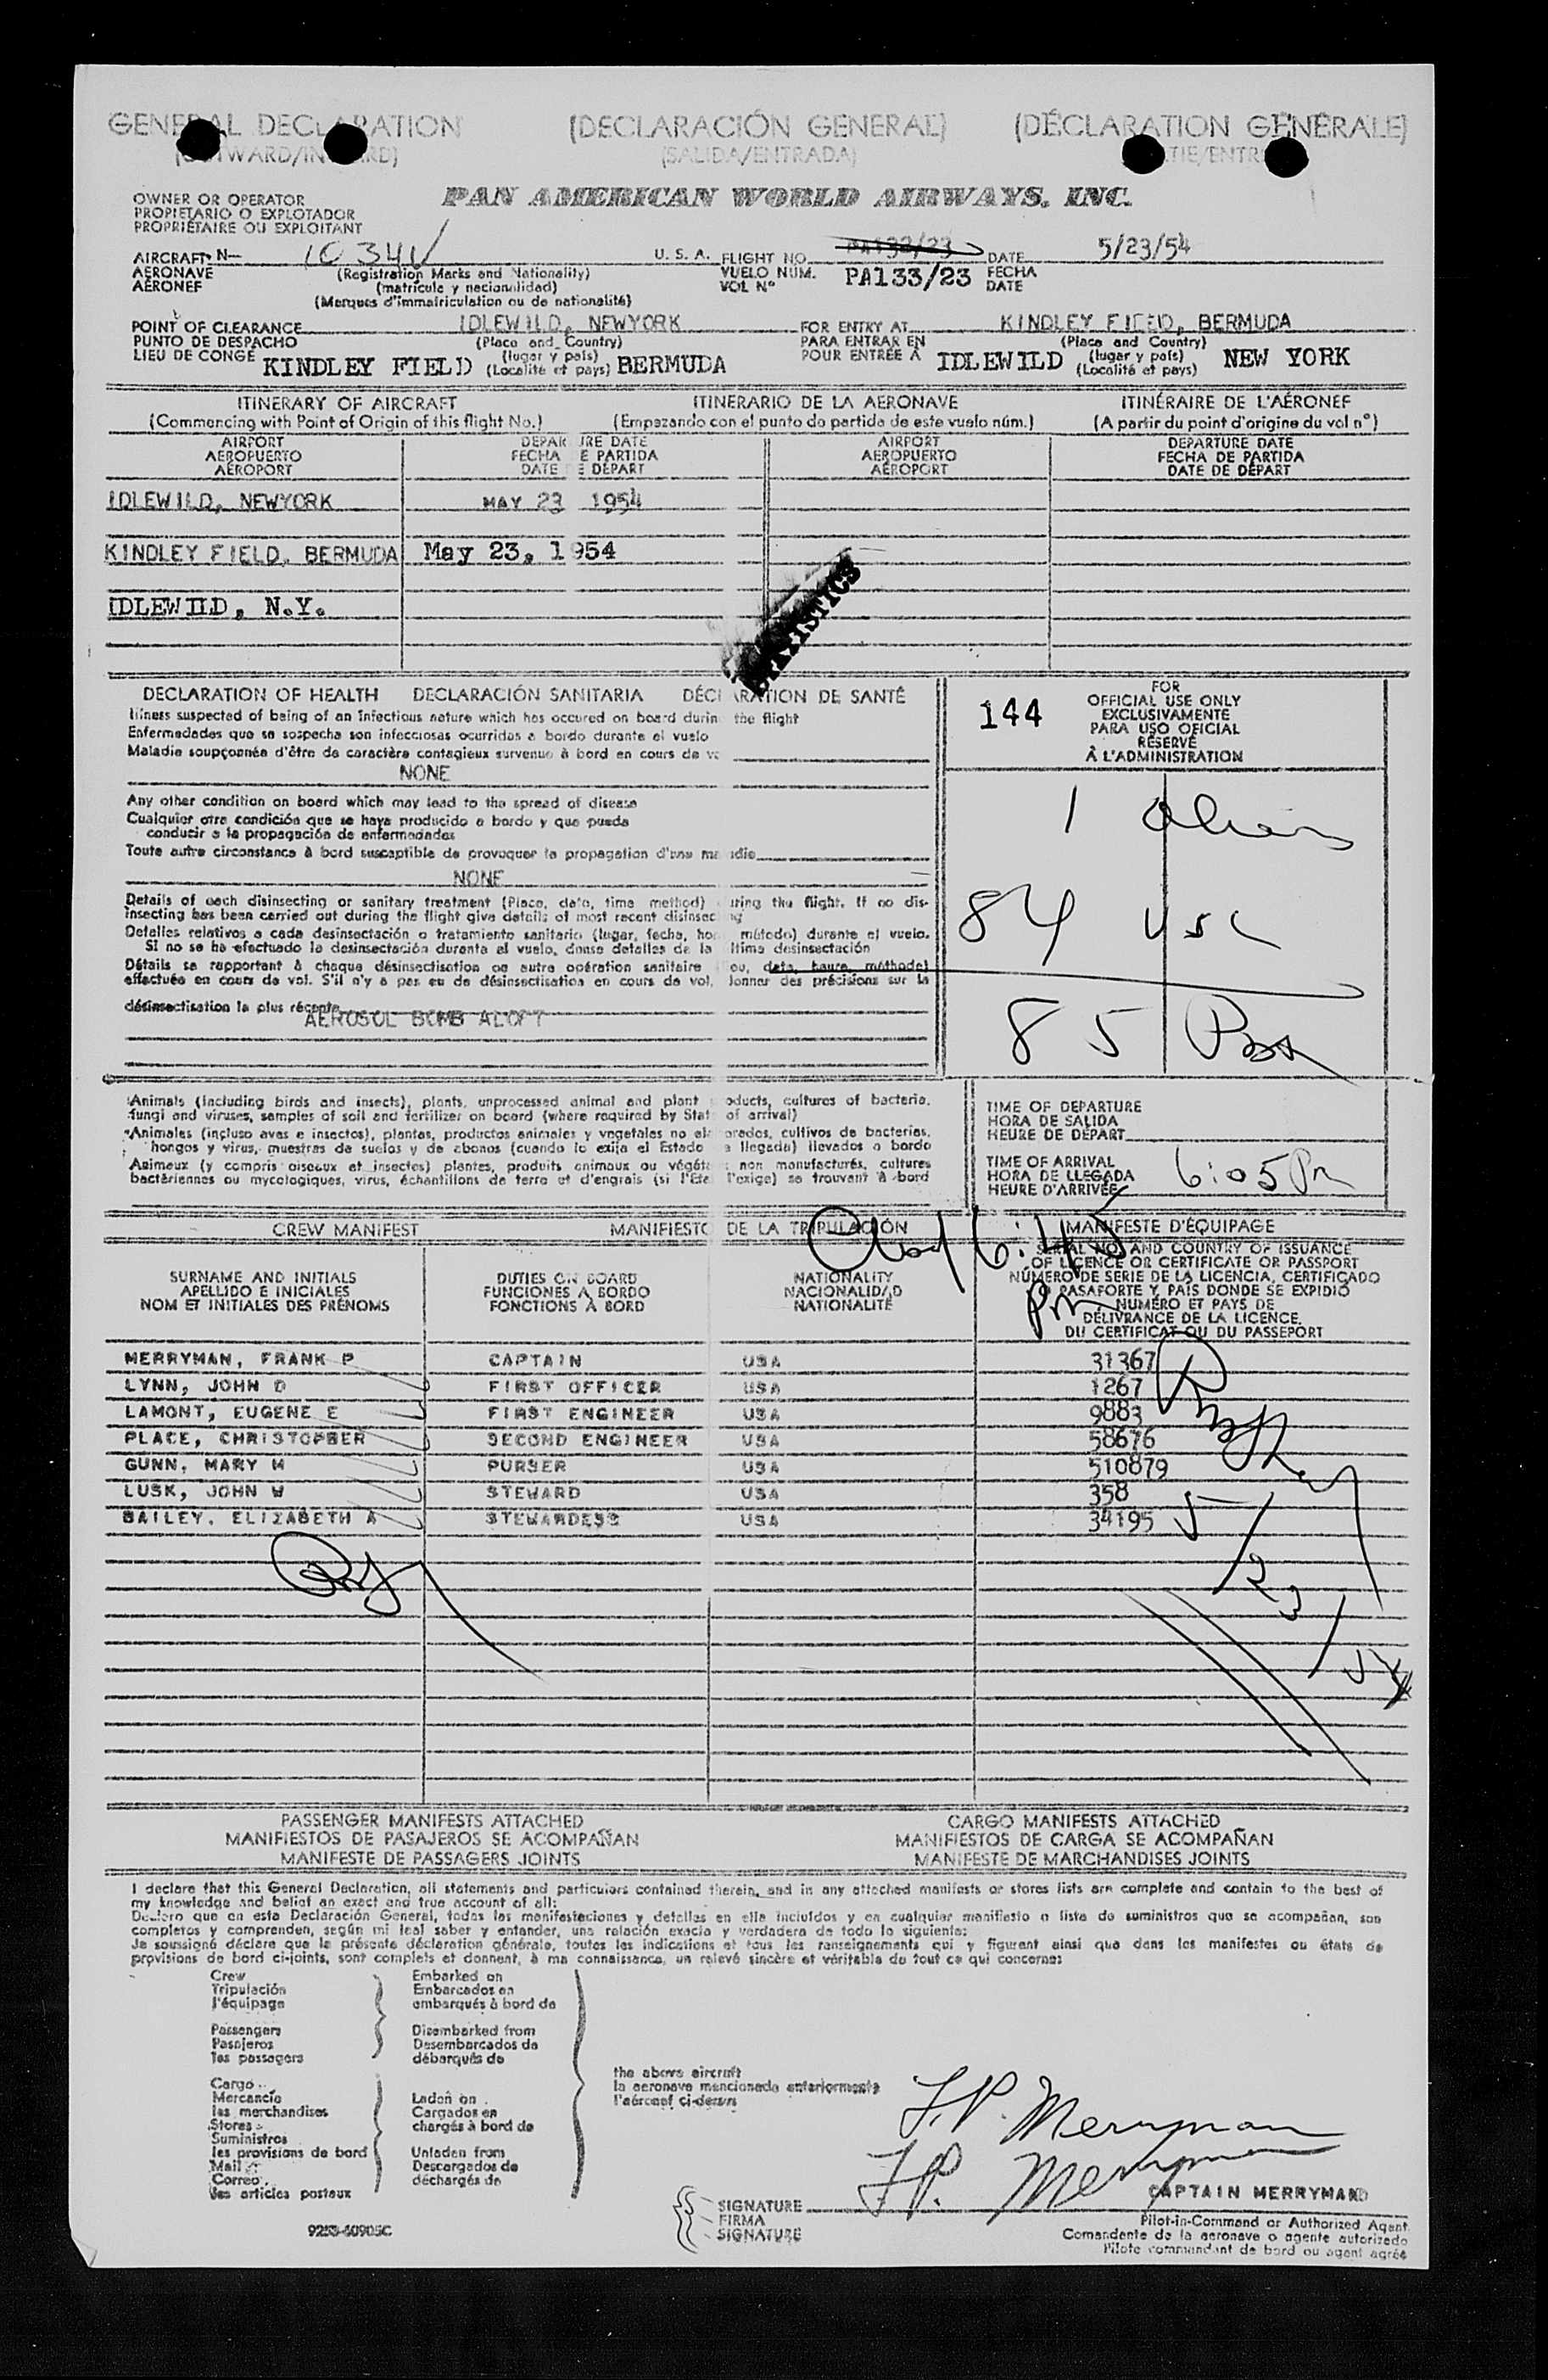 GENERAL DECLARATION (DECLARACIÓN GENERAL) (DÉCLARATION GÉNÉRALE)
(SALIDA/ENTRADA)
OWNER OR OPERATOR
PROPIETARIO O EXPLOTADOR
PROPRIÉTAIRE OU EXPLOITANT
PAN AMERICAN WORLD AIRWAYS, INC.
AIRCRAFT N— 1034V U. S. A. FLIGHT NO. PA132/23 DATE 5/23/54
AERONAVE (Registration Marks and Nationality) VUELO NÚM. PA133/23 FECHA
AÉRONEF (matrícula y nacionalidad) VOL Nº DATE
(Marques d'immatriculation ou de nationalité)
POINT OF CLEARANCE IDLEWILD, NEWYORK FOR ENTRY AT KINDLEY FIELD, BERMUDA
PUNTO DE DESPACHO (Place and Country) PARA ENTRAR EN (Place and Country)
LIEU DE CONGÉ KINDLEY FIELD (lugar y país) BERMUDA POUR ENTRÉE À IDLEWILD (lugar y país) NEW YORK
(Localité et pays) (Localité et pays)
ITINERARY OF AIRCRAFT ITINERARIO DE LA AERONAVE ITINÉRAIRE DE L'AÉRONEF
(Commencing with Point of Origin of this flight No.) (Empezando con el punto de partida de este vuelo núm.) (A partir du point d'origine du vol nº)
AIRPORT DEPAR URE DATE AIRPORT DEPARTURE DATE
AEROPUERTO FECHA E PARTIDA AEROPUERTO FECHA DE PARTIDA
AÉROPORT DATE E DÉPART AÉROPORT DATE DE DÉPART
IDLEWILD, NEWYORK MAY 23 1954
KINDLEY FIELD, BERMUDA May 23, 1954
IDLEWILD, N.Y.
STATISTICS
DECLARATION OF HEALTH DECLARACIÓN SANITARIA DÉCL RATION DE SANTÉ
Illness suspected of being of an infectious nature which has occured on board durin the flight
Enfermedades que se sospecha son infecciosas ocurridas a bordo durante el vuelo
Maladie soupçonnée d'être de caractère contagieux survenue à bord en cours de v
NONE
Any other condition on board which may lead to the spread of disease
Cualquier otra condición que se haya producido a bordo y que pueda
conducir a la propagación de enfermedades
Toute autre circonstance à bord susceptible de provoquer la propagation d'une ma adie
NONE
Details of each disinsecting or sanitary treatment (Place, date, time method) uring the flight. If no dis-
insecting has been carried out during the flight give details of most recent disinsec ng
Detalles relativos a cada desinsectación o tratamiento sanitario (lugar, fecha, hor método) durante el vuelo.
Si no se ha efectuado la desinsectación durante el vuelo, dense detalles de la ltima desinsectación
Détails se rapportant à chaque désinsectisation ou autre opération sanitaire ou, date, heure, méthode)
effectuée en cours de vol. S'il n'y a pas eu de désinsectisation en cours de vol, donner des précisions sur la
désinsectisation la plus récente
AEROSOL BOMB ALOFT
144
FOR
OFFICIAL USE ONLY
EXCLUSIVAMENTE
PARA USO OFICIAL
RÉSERVÉ
À L'ADMINISTRATION
1 Alien
84 USC
85 Pax
Animals (including birds and insects), plants, unprocessed animal and plant oducts, cultures of bacteria,
fungi and viruses, samples of soil and fertilizer on board (where required by Stat of arrival)
Animales (incluso aves e insectos), plantas, productos animales y vegetales no el orados, cultivos de bacterias,
hongos y virus, muestras de suelos y de abonos (cuando lo exija el Estado e llegada) llevados a bordo
Animaux (y compris oiseaux et insectes) plantes, produits animaux ou végéta non manufacturés, cultures
bactériennes ou mycologiques, virus, échantillons de terre et d'engrais (si l'Eta l'exige) se trouvant à bord
TIME OF DEPARTURE
HORA DE SALIDA
HEURE DE DÉPART
TIME OF ARRIVAL
HORA DE LLEGADA 6:05 Pm
HEURE D'ARRIVÉE
CREW MANIFEST MANIFIESTO DE LA TRIPULACIÓN MANIFESTE D'ÉQUIPAGE
6:45
Pm
SURNAME AND INITIALS DUTIES ON BOARD NATIONALITY
APELLIDO E INICIALES FUNCIONES A BORDO NACIONALIDAD
NOM ET INITIALES DES PRÉNOMS FONCTIONS À BORD NATIONALITÉ
SERIAL NO. AND COUNTRY OF ISSUANCE
OF LICENCE OR CERTIFICATE OR PASSPORT
NÚMERO DE SERIE DE LA LICENCIA, CERTIFICADO
O PASAPORTE Y PAÍS DONDE SE EXPIDIÓ
NUMÉRO ET PAYS DE
DÉLIVRANCE DE LA LICENCE,
DU CERTIFICAT OU DU PASSEPORT
MERRYMAN, FRANK P CAPTAIN USA 31367
LYNN, JOHN D FIRST OFFICER USA 1267
LAMONT, EUGENE E FIRST ENGINEER USA 9883
PLACE, CHRISTOPBER SECOND ENGINEER USA 58676
GUNN, MARY M PURSER USA 510879
LUSK, JOHN W STEWARD USA 358
BAILEY, ELIZABETH A STEWARDESS USA 34195
5/23/54
PASSENGER MANIFESTS ATTACHED CARGO MANIFESTS ATTACHED
MANIFIESTOS DE PASAJEROS SE ACOMPAÑAN MANIFIESTOS DE CARGA SE ACOMPAÑAN
MANIFESTE DE PASSAGERS JOINTS MANIFESTE DE MARCHANDISES JOINTS
I declare that this General Declaration, all statements and particulars contained therein, and in any attached manifests or stores lists are complete and contain to the best of
my knowledge and belief an exact and true account of all:
Declaro que en esta Declaración General, todas las manifestaciones y detalles en ella incluídos y en cualquier manifiesto o lista de suministros que se acompañan, son
completos y comprenden, según mi leal saber y entender, una relación exacta y verdadera de todo lo siguiente:
Je soussigné déclare que la présente déclaration générale, toutes les indications et tous les renseignements qui y figurent ainsi que dans les manifestes ou états de
provisions de bord ci-joints, sont complets et donnent, à ma connaissance, un relevé sincère et véritable de tout ce qui concerne:
Crew Embarked on
Tripulación Embarcados en
l'équipage embarqués à bord de
Passengers Disembarked from
Pasajeros Desembarcados de
les passagers débarqués de
the above aircraft
la aeronave mencionada anteriormente
l'aéronef ci-dessus
Cargo
Mercancía Laden on
les merchandises Cargados en
Stores chargés à bord de
Suministros
les provisions de bord Unladen from
Mail Descargados de
Correo déchargés de
les articles postaux
F.P. Merryman
F.P. Merryman
CAPTAIN MERRYMAN
SIGNATURE
FIRMA
SIGNATURE
Pilot-in-Command or Authorized Agent
Comandante de la aeronave o agente autorizado
Pilote commandant de bord ou agent agréé
9253-60905C